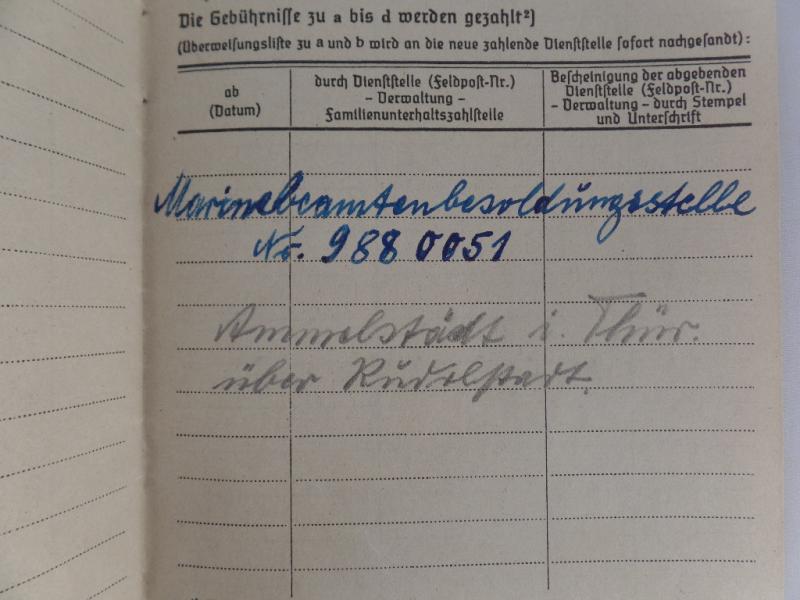 Die Gebührnisse zu a bis d werden gezahlt²)
(Überweisungsliste zu a und b wird an die neue zahlende Dienststelle sofort nachgesandt):
ab
(Datum)
durch Dienststelle (Feldpost-Nr.)
- Verwaltung -
Familienunterhaltszahlstelle
Bescheinigung der abgebenden
Dienststelle (Feldpost-Nr.)
- Verwaltung - durch Stempel
und Unterschrift
Marinebeamtenbesoldungsstelle
Nr. 988 0051
Ammelstädt i. Thür.
über Rudolstadt.